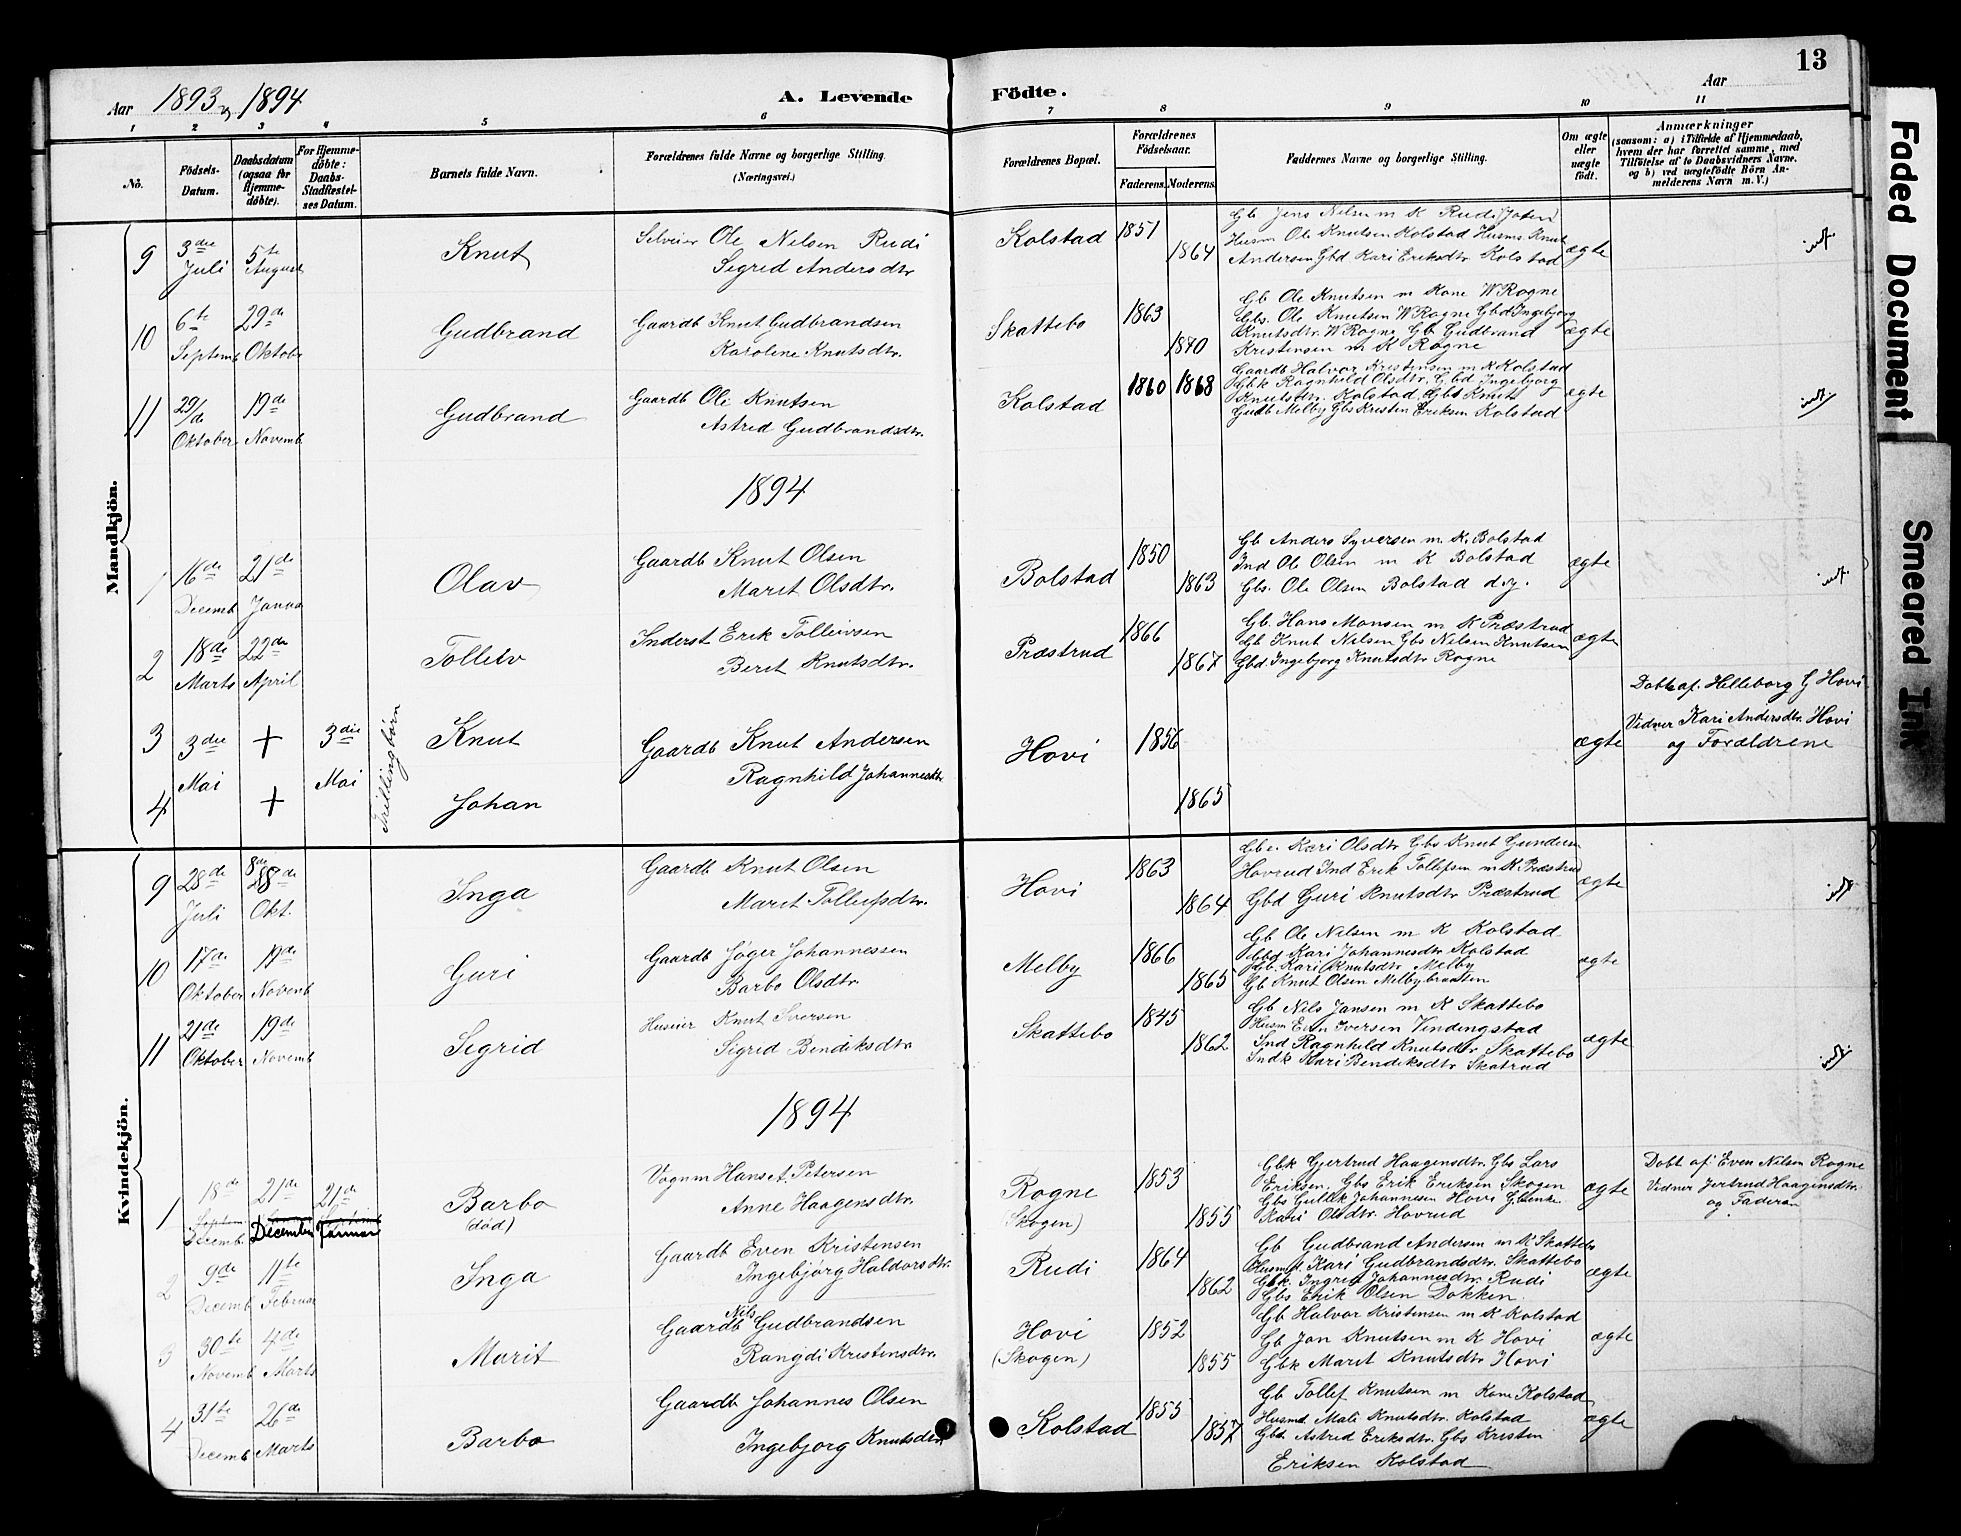 13
Aar 1893 og 1894
A. Levende Födte.
Aar
1 2 3 4 5 6 7 8 9 10 11
No.
Födsels-Datum.
Daabsdatum (ogsaa for Hjemme-döbte).
For Hjemme-döbte: Daabs-Stadfæstel-ses Datum.
Barnets fulde Navn.
Forældrenes fulde Navne og borgerlige Stilling.
(Næringsvei.)
Forældrenes Bopæl.
Forældrenes Födselsaar.
Faderens. Moderens.
Faddernes Navne og borgerlige Stilling.
Om ægte eller uægte födt.
Anmærkninger
(saasom: a) i Tilfælde af Hjemmedaab, hvem der har forrettet samme, med Tilföielse af to Daabsvidners Navne. og b) ved uægtefödte Börn Anmelderens Navn m. V.)
Mandkjön.
9 3die Juli 5te August Knut
Selveier Ole Nilsen Rudi
Sigrid Andersdtr.
Kolstad 1851 1864
Gb Jens Nilsen m K Rudi
Husm Ole Knutsen Kolstad Husms. Knut
Andersen Gbd Kari Eriksdtr. Kolstad
ægte
10 6te Septemb 29de Oktober Gudbrand
Gaardb Knut Gudbrandsen
Karolene Knutsdtr.
Skattebo 1863 1870
Gb Ole Knutsen m Kone W Rogne
Gbs. Ole Knutsen W Rogne Gbd Ingebjorg
Knutsdtr. W Rogne Gb Gudbrand
Kristensen m K Rogne
ægte
11 29de Oktober 19de Novemb Gudbrand
Gaardb Ole Knutsen
Astrid Gudbrandsdtr.
Kolstad 1860 1868
Gaardb Halvor Kristensen m K Kolstad
Gbk Ragnhild Olsdtr. Gbd Ingebjorg
Knutsdtr. Kolstad Gbs Knut
Gudb Melby Gbs Kristen Eriksen Kolstad
ægte
1894
1 16de Decemb 21de Janua Olav
Gaardb Knut Olsen
Marit Olsdtr.
Bolstad 1850 1863
Gb Anders Syversen m. K. Bolstad
Ind Ole Olsen m K Bolstad
Gbs. Ole Olsen Bolstad d.y.
ægte
2 18de Marts 22de April Tolleiv
Inderst Erik Tolleivsen
Berit Knutsdtr.
Præstrud 1866 1867
Gb. Hans Monsen m K Præstrud
Gb Knut Nilsen Gbs Nilsen Knutsen
Gbd Ingebjorg Knutsdtr Rogne
ægte
3 3die Mai + 3die Mai Knut
Trillingbørn
Gaardb Knut Andersen
Ragnhild Johannesdtr
Hovi 1856 1865
ægte
Døbt af. Helleborg G Hovi
Vidner Kari Andersdtr. Hovi
og Forældrene
4 + Johan
Kvindekjön.
9 28de Juli 8de Okt. Inga
Gaardb Knut Olsen
Marit Tollefsdtr.
Hovi 1863 1864
Gbe. Kari Olsdtr Gbs Knut Gundersen
Hovrud Ind Erik Tollefsen m K Præstrud
Gbd Guri Knutsdtr Præstrud
ægte
10 17de Oktober 19de Novemb Guri
Gaardb Jøger Johannessen
Barbo Olsdtr.
Melby 1866 1865
Gb Ole Nilsen m K Kolstad
Gbd Kari Johannesdtr Kolstad
Gb. Kari Knutsdtr. Melby
Gb Knut Olsen Melbybraaten
ægte
11 21de Oktober 19de Novemb Sigrid
Huseier Knut Iversen
Sigrid Bendiksdtr
Skattebo 1845 1862
Gb Nils Jansen m K Skattebo
Husm Even Iversen Vindingstad
Ind Ragnhild Knutsdtr Skattebo
Indk Kari Bendiksdtr Skatrud
ægte
1894
1 18de Decemb 21de December 21de Januar Barbo
(död)
Vognm Hans A. Petersen
Anne Haagensdtr.
Rogne
(Skogen)
1853 1855
Gbk Gjertrud Haagensdtr. Gbs Lars
Eriksen, Gbs Erik Eriksen Skogen
Gbs Gullik Johannesen Hovi Gbenke
Kari Olsdtr. Hovrud
ægte
Døbt af Even Nilsen Rogne
Vidner Jertrud Haagensdtr.
og Faderen
2 9de Decemb 11te Februar Inga
Gaardb Even Kristensen
Ingebjörg Haldorsdtr.
Rudi 1864 1862
Gb Gudbrand Andersen m K Skattebo
Husmd Kari Gudbrandsdtr. Skattebo
Gbk. Ingrid Johannesdtr. Rudi
Gbs Erik Olsen Dokken.
ægte
3 30te Novemb 4de Marts Marit
Gaardb Nils Gudbrandsen
Rangdi Kristensdtr.
Hovi
(Skogen)
1852 1855
Gb Halvor Kristensen m K Kolstad
Gb Jan Knutsen m K Hovi
Gbk Marit Knutsdtr Hovi
ægte
4 31te Decemb 26de Marts Barbo
Gaardb Johannes Olsen
Ingebjorg Knutsdtr
Kolstad 1855 1857
Gb Tollef Knutsen m Kone Kolstad
Husmd Mali Knutsdtr. Kolstad
Gbd Astrid Eriksdtr. Gbs Kristen
Eriksen Kolstad
ægte
Faded Document
Smeared Ink